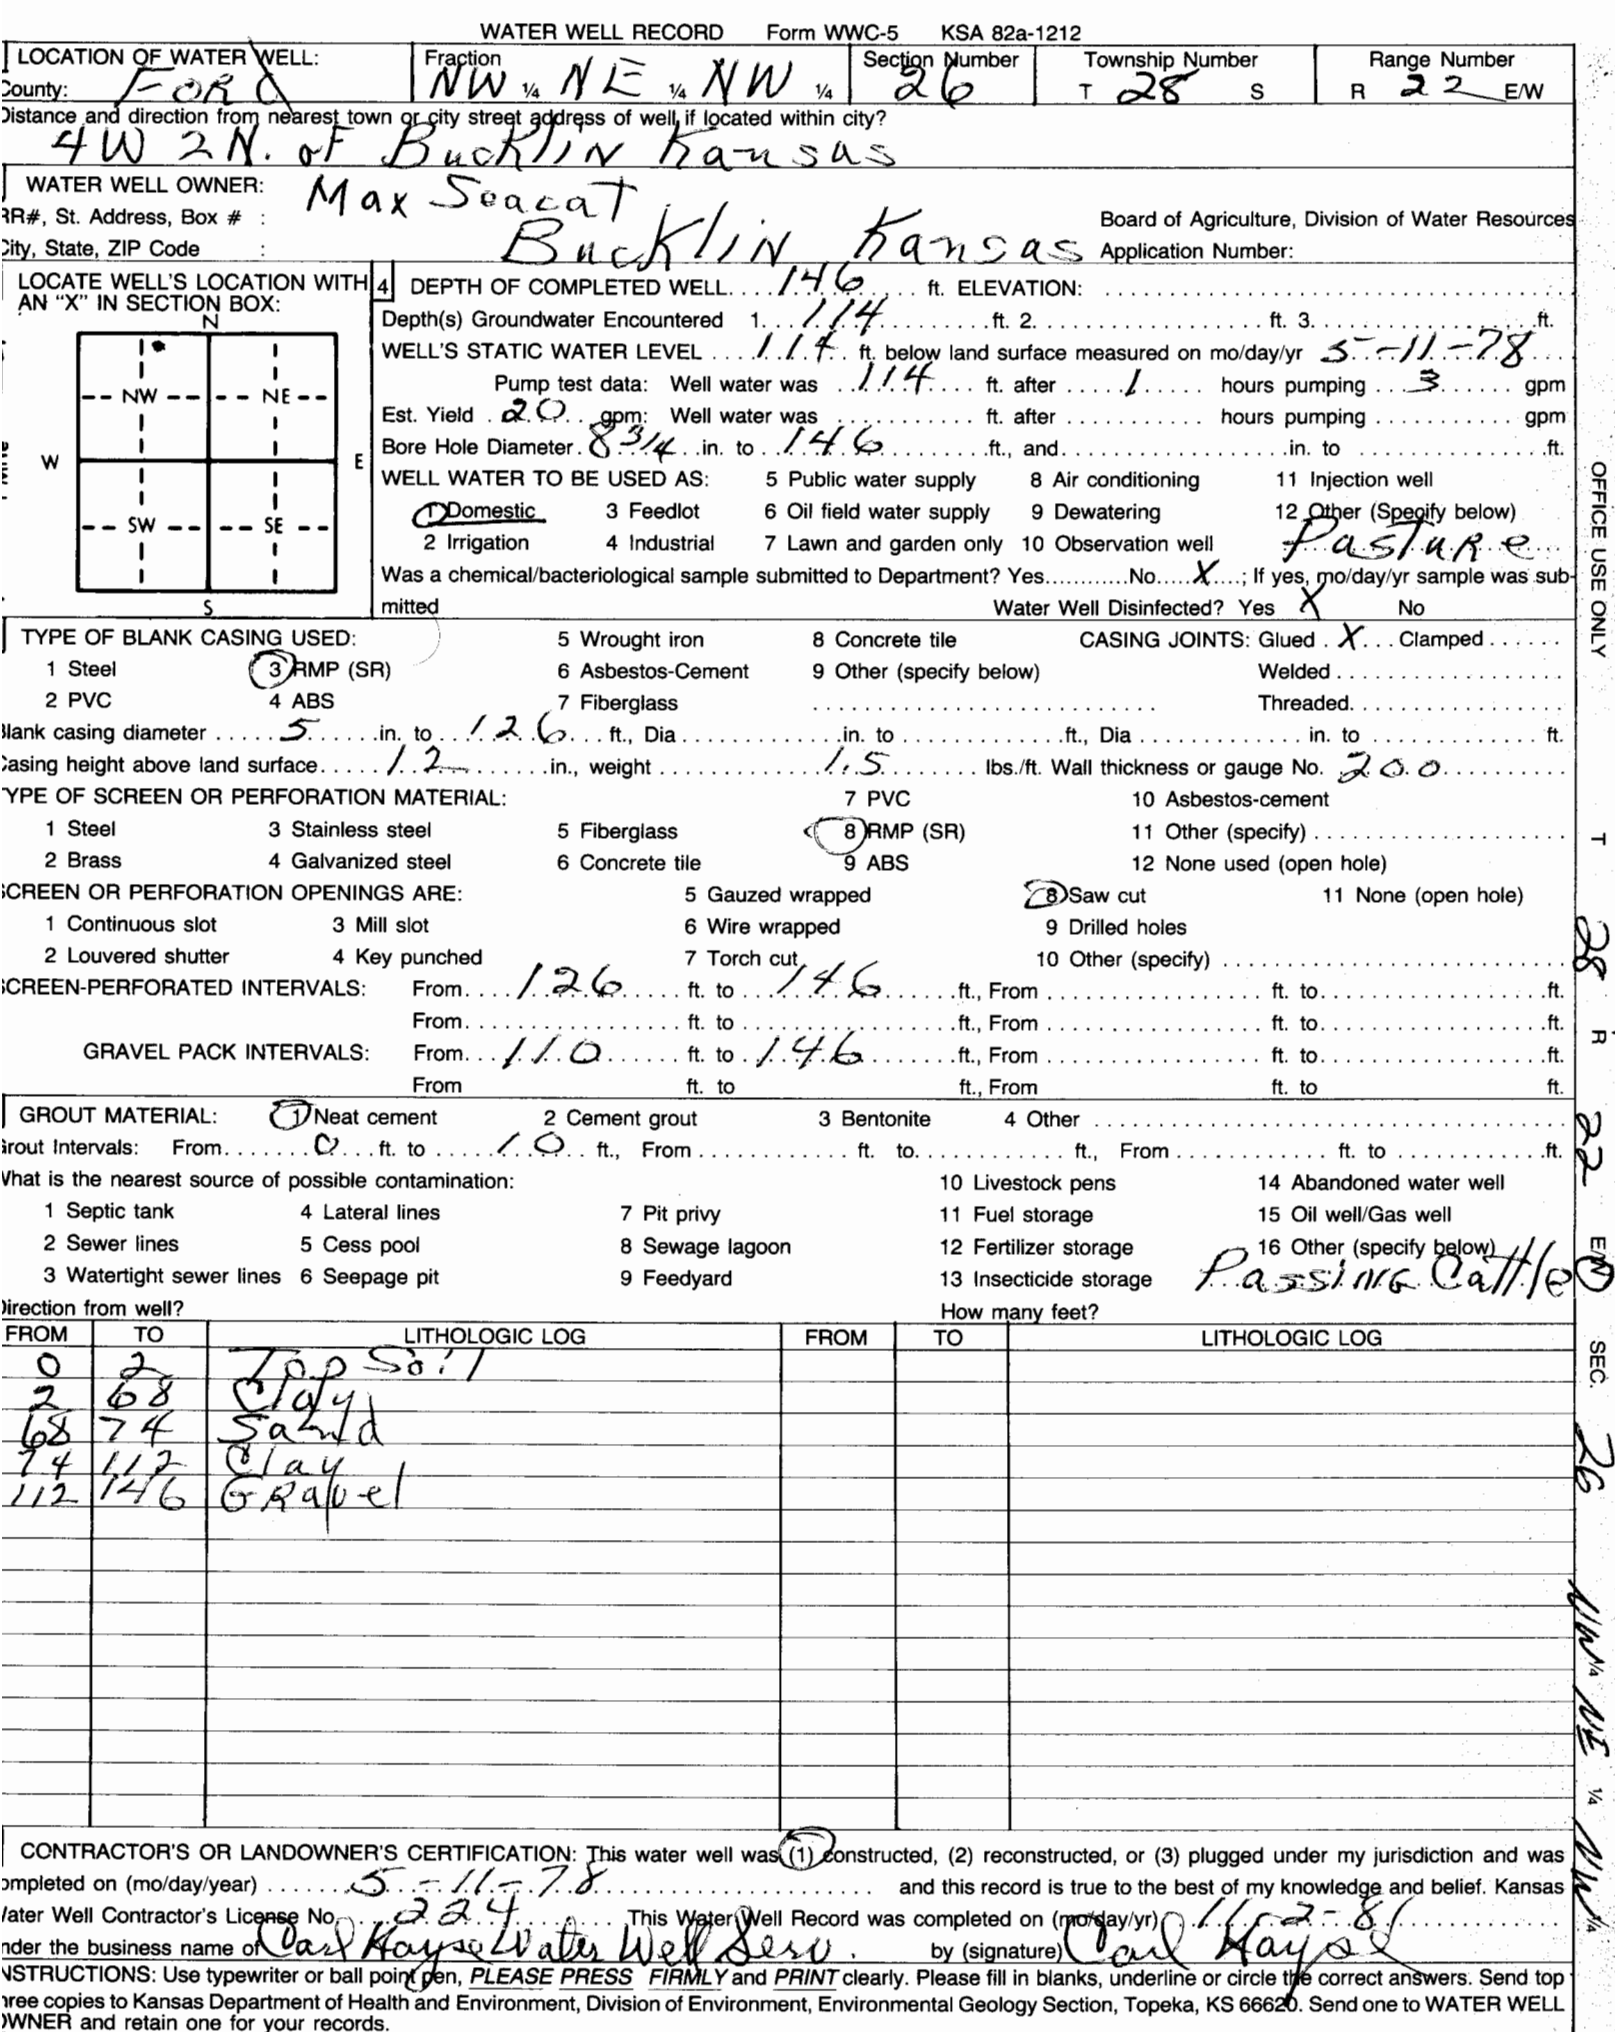 WATER WELL RECORD Form WWC-5 KSA 82a-1212
LOCATION OF WATER WELL: Fraction Section Number Township Number Range Number
County: Ford NW ¼ NE ¼ NW ¼ 26 T 28 S R 22 E/W
Distance and direction from nearest town or city street address of well if located within city?
4W 2N. of Bucklin Kansas
WATER WELL OWNER: Max Seacat
RR#, St. Address, Box # : Board of Agriculture, Division of Water Resources
City, State, ZIP Code : Bucklin Kansas Application Number:
LOCATE WELL'S LOCATION WITH 4 DEPTH OF COMPLETED WELL. 146 ft. ELEVATION:
AN "X" IN SECTION BOX:
N
NW NE
W E
SW SE
S
Depth(s) Groundwater Encountered 1. 114 ft. 2. ft. 3. ft.
WELL'S STATIC WATER LEVEL 114 ft. below land surface measured on mo/day/yr 5-11-78
Pump test data: Well water was 114 ft. after 1 hours pumping 3 gpm
Est. Yield 20 gpm: Well water was ft. after hours pumping gpm
Bore Hole Diameter 8 3/4 in. to 146 ft., and in. to ft.
WELL WATER TO BE USED AS: 5 Public water supply 8 Air conditioning 11 Injection well
1 Domestic 3 Feedlot 6 Oil field water supply 9 Dewatering 12 Other (Specify below)
2 Irrigation 4 Industrial 7 Lawn and garden only 10 Observation well Pasture
Was a chemical/bacteriological sample submitted to Department? Yes No X ; If yes, mo/day/yr sample was sub-
mitted Water Well Disinfected? Yes X No
TYPE OF BLANK CASING USED: 5 Wrought iron 8 Concrete tile CASING JOINTS: Glued X Clamped
1 Steel 3 RMP (SR) 6 Asbestos-Cement 9 Other (specify below) Welded
2 PVC 4 ABS 7 Fiberglass Threaded
Blank casing diameter 5 in. to 126 ft., Dia in. to ft., Dia in. to ft.
Casing height above land surface 12 in., weight 1.5 lbs./ft. Wall thickness or gauge No. 200
TYPE OF SCREEN OR PERFORATION MATERIAL: 7 PVC 10 Asbestos-cement
1 Steel 3 Stainless steel 5 Fiberglass 8 RMP (SR) 11 Other (specify)
2 Brass 4 Galvanized steel 6 Concrete tile 9 ABS 12 None used (open hole)
SCREEN OR PERFORATION OPENINGS ARE: 5 Gauzed wrapped 8 Saw cut 11 None (open hole)
1 Continuous slot 3 Mill slot 6 Wire wrapped 9 Drilled holes
2 Louvered shutter 4 Key punched 7 Torch cut 10 Other (specify)
SCREEN-PERFORATED INTERVALS: From 126 ft. to 146 ft., From ft. to ft.
From ft. to ft., From ft. to ft.
GRAVEL PACK INTERVALS: From 110 ft. to 146 ft., From ft. to ft.
From ft. to ft., From ft. to ft.
GROUT MATERIAL: 1 Neat cement 2 Cement grout 3 Bentonite 4 Other
Grout Intervals: From 0 ft. to 10 ft., From ft. to ft., From ft. to ft.
What is the nearest source of possible contamination: 10 Livestock pens 14 Abandoned water well
1 Septic tank 4 Lateral lines 7 Pit privy 11 Fuel storage 15 Oil well/Gas well
2 Sewer lines 5 Cess pool 8 Sewage lagoon 12 Fertilizer storage 16 Other (specify below)
3 Watertight sewer lines 6 Seepage pit 9 Feedyard 13 Insecticide storage Passing Cattle
Direction from well? How many feet?
FROM TO LITHOLOGIC LOG FROM TO LITHOLOGIC LOG
0 2 Top Soil
2 68 Clay
68 74 Sand
74 112 Clay
112 146 Gravel
CONTRACTOR'S OR LANDOWNER'S CERTIFICATION: This water well was (1) constructed, (2) reconstructed, or (3) plugged under my jurisdiction and was
completed on (mo/day/year) 5-11-78 and this record is true to the best of my knowledge and belief. Kansas
Water Well Contractor's License No. 224 This Water Well Record was completed on (mo/day/yr) 11-2-81
under the business name of Carl Hayse Water Well Serv. by (signature) Carl Hayse
INSTRUCTIONS: Use typewriter or ball point pen, PLEASE PRESS FIRMLY and PRINT clearly. Please fill in blanks, underline or circle the correct answers. Send top
three copies to Kansas Department of Health and Environment, Division of Environment, Environmental Geology Section, Topeka, KS 66620. Send one to WATER WELL
OWNER and retain one for your records.
OFFICE USE ONLY
T 28 R 22 E/W SEC. 26 NW ¼ NE ¼ NW ¼